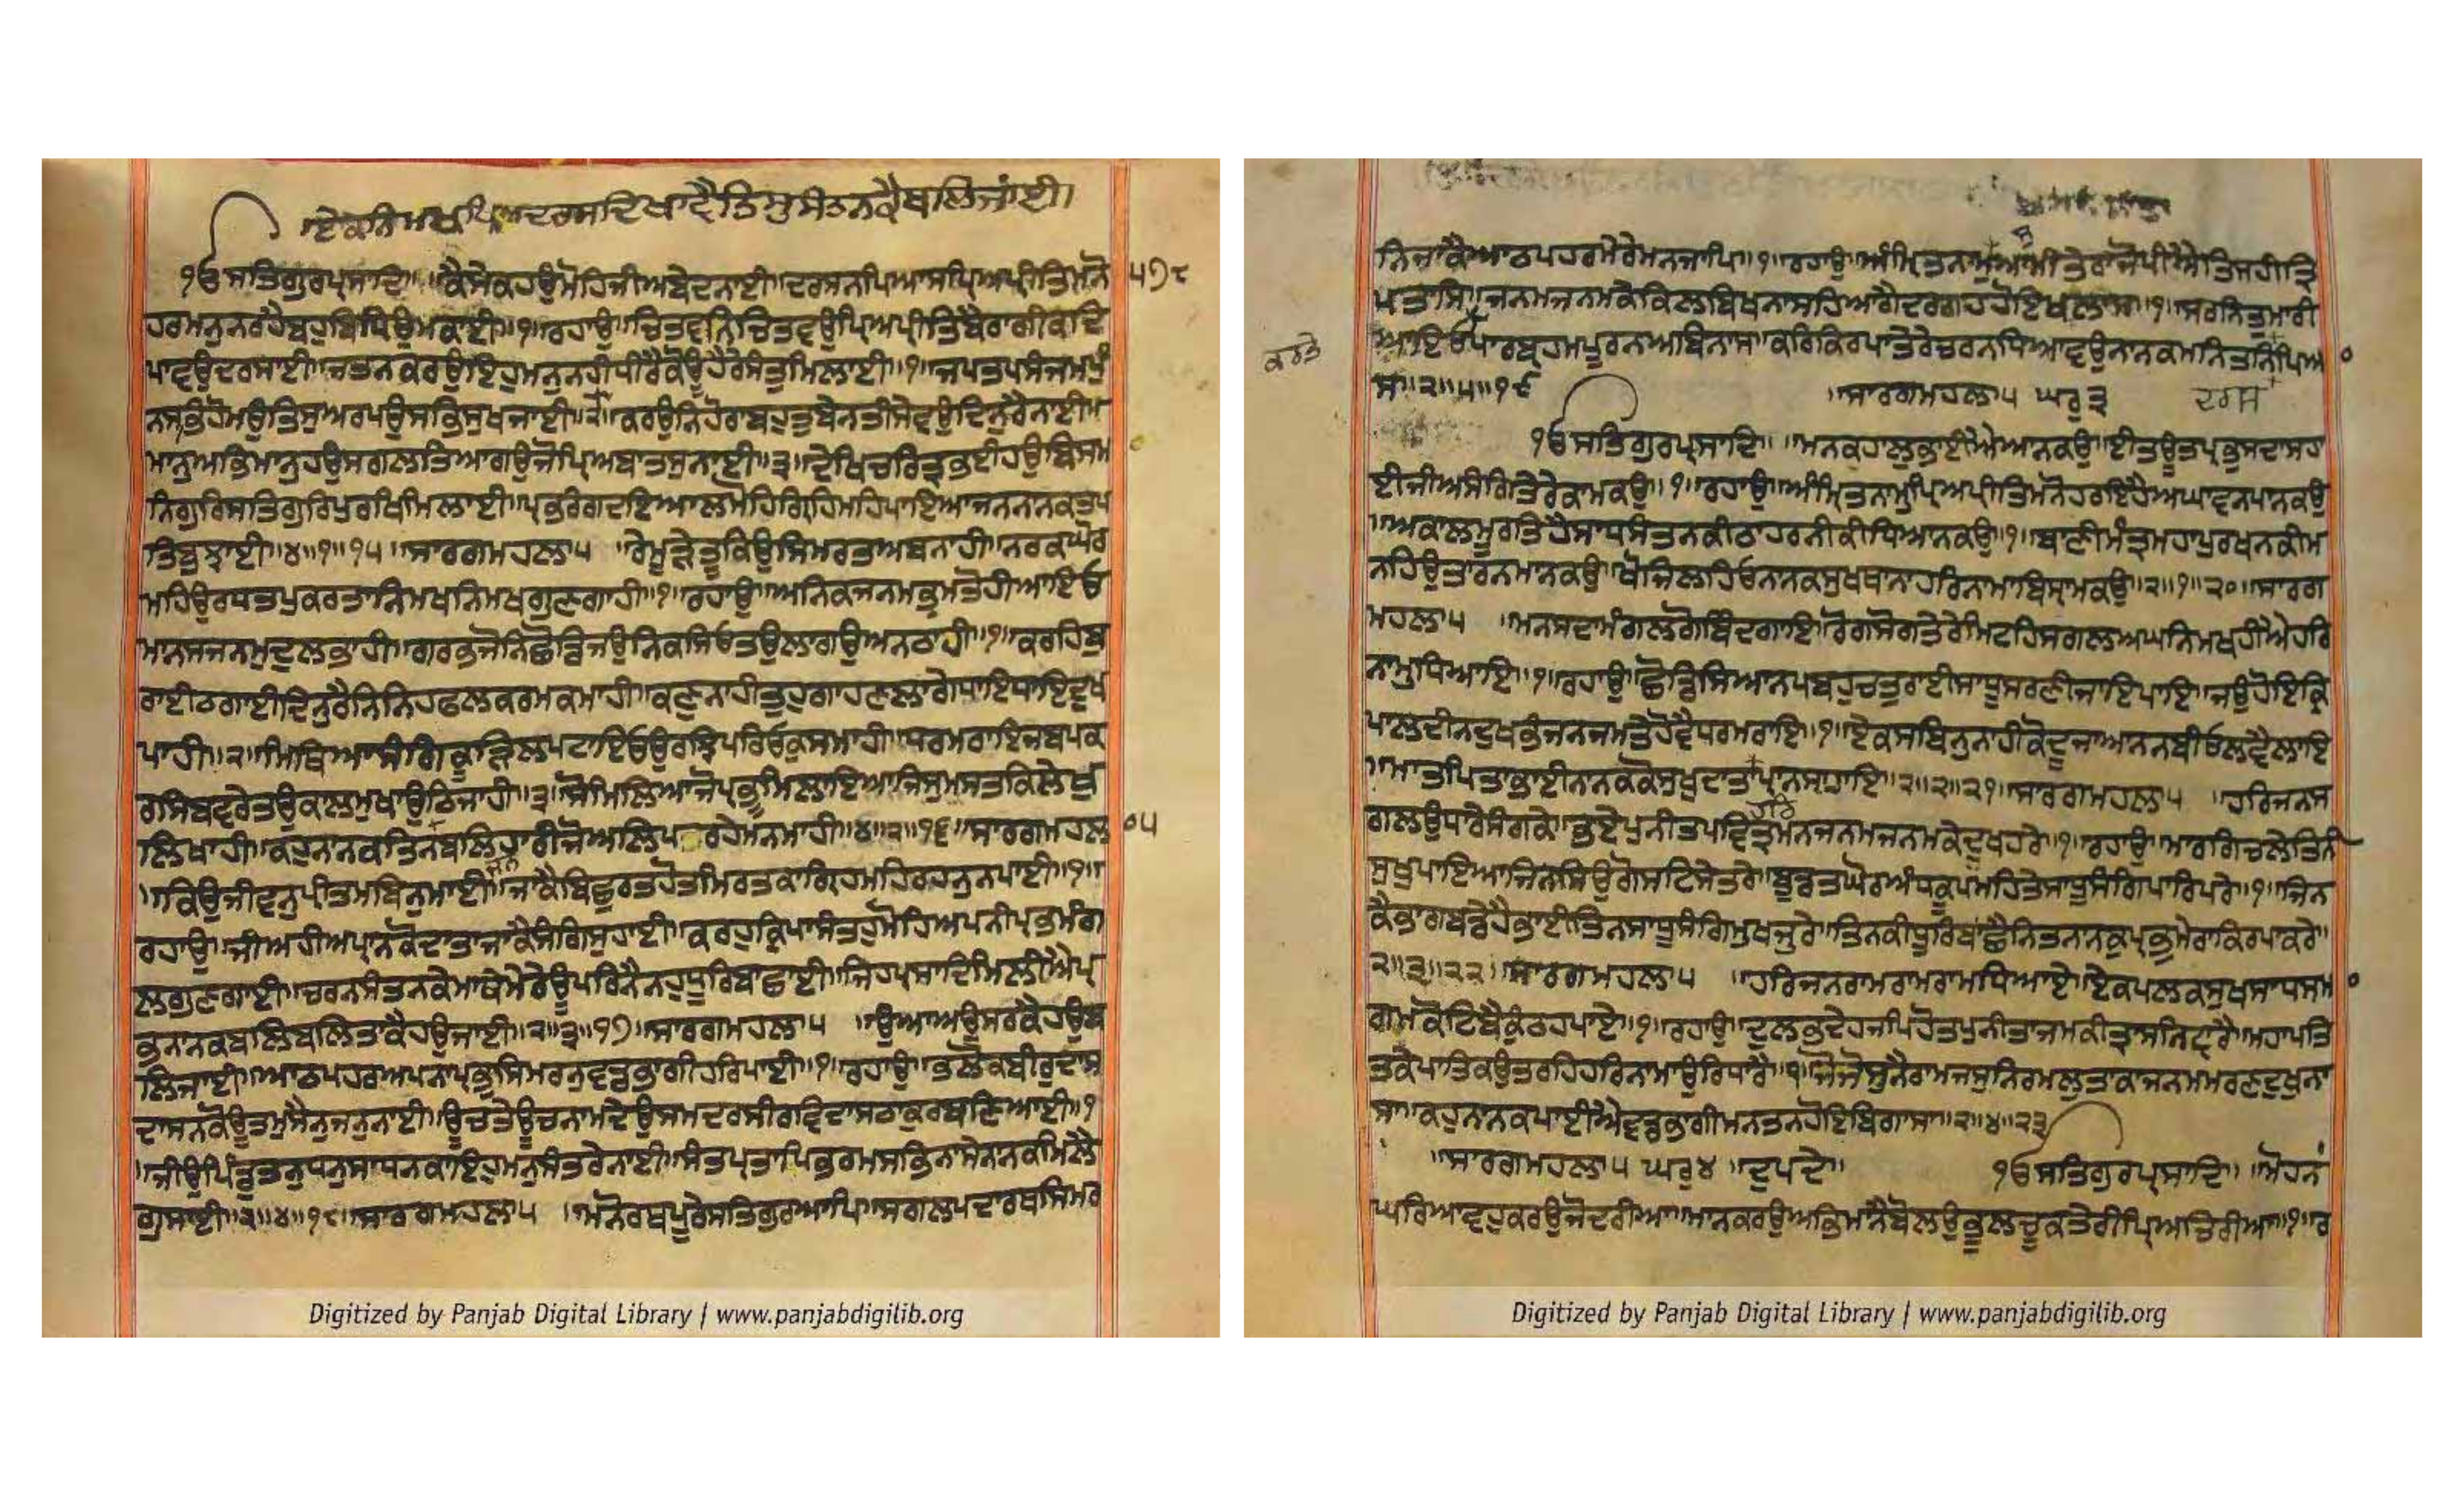 ਏਕਨਿਮਖਪ੍ਰਿਅਦਰਸੁਦਿਖਾਵੈਤਿਸੁਸੰਤਨਕੈਬਲਿਜਾਂਈ।
ੴਸਤਿਗੁਰਪ੍ਰਸਾਦਿ॥ ॥ਕੈਸੇਕਹਉਮੋਹਿਜੀਅਬੇਦਨਾਈ॥ਦਰਸਨਪਿਆਸਪ੍ਰਿਅਪ੍ਰੀਤਿਮਨੋ ੫੭੮
ਹਰਮਨੁਨਰਹੈਬਹੁਬਿਧਿਉਮਕਾਈ॥੧॥ਰਹਾਉ॥ਚਿਤਵਨਿਚਿਤਵਉਪ੍ਰਿਅਪ੍ਰੀਤਿਬੈਰਾਗੀਕਦਿ
ਪਾਵਉਦਰਸਾਈ॥ਜਤਨਕਰਉਇਹੁਮਨੁਨਹੀਧੀਰੈਕੋਊਹੈਰੇਸੰਤੁਮਿਲਾਈ॥੧॥ਜਪਤਪਸੰਜਮਪੁੰ
ਨਸਭਿਹੋਮਉਤਿਸੁਅਰਪਉਸਭਿਸੁਖਜਾਈ॥੨॥ਕਰਉਨਿਹੋਰਾਬਹੁਤੁਬੇਨਤੀਸੇਵਉਦਿਨੁਰੈਨਾਈ॥
ਮਾਨੁਅਭਿਮਾਨੁਹਉਸਗਲਤਿਆਗਉਜੋਪ੍ਰਿਅਬਾਤਸੁਨਾਈ॥੩॥ਦੇਖਿਚਰਿਤ੍ਰਭਈਹਉਬਿਸਮ
ਨਿਗੁਰਿਸਤਿਗੁਰਿਪੁਰਖਿਮਿਲਾਈ॥ਪ੍ਰਭਰੰਗਦਇਆਲਮੋਹਿਗ੍ਰਿਹਿਮਹਿਪਾਇਆਜਨਨਾਨਕਤਪ
ਤਿਬੁਝਾਈ॥੪॥੧॥੧੫॥ਸਾਰਗਮਹਲਾ੫ ॥ਰੇਮੂੜ੍ਹੇਤੂਕਿਉਸਿਮਰਤਅਬਨਾਹੀ॥ਨਰਕਘੋਰ
ਮਹਿਉਰਧਤਪੁਕਰਤਾਨਿਮਖਨਿਮਖਗੁਣਗਾਹੀ॥੧॥ਰਹਾਉ॥ਅਨਿਕਜਨਮਭ੍ਰਮਤੋਹੀਆਇਓ
ਮਾਨਸਜਨਮੁਦੁਲਭਾਹੀ॥ਗਰਭਜੋਨਿਛੋਡਿਜਉਨਿਕਸਿਓਤਉਲਾਗਉਅਨਠਾਹੀ॥੧॥ਕਰਹਿਬੁ
ਰਾਈਠਗਾਈਦਿਨੁਰੈਨਿਨਿਹਫਲਕਰਮਕਮਾਹੀ॥ਕਣੁਨਾਹੀਤੁਹਗਾਹਣਲਾਗੇਧਾਇਧਾਇਦੁਖ
ਪਾਹੀ॥੨॥ਮਿਥਿਆਸੰਗਿਕੂੜਿਲਪਟਾਇਓਉਰਝਿਪਰਿਓਕੁਸਮਾਹੀ॥ਧਰਮਰਾਇਜਬਪਕ
ਰਸਿਬਵਰੇਤਉਕਾਲਮੁਖਾਉਠਿਜਾਹੀ॥੩॥ਸੋਮਿਲਿਆਜੋਪ੍ਰਭੂਮਿਲਾਇਆਜਿਸੁਮਸਤਕਿਲੇਖੁ
ਲਿਖਾਹੀ॥ਕਹੁਨਾਨਕਤਿਨਬਲਿਹਾਰੀਜੋਅਲਿਪਰਹੇਮਨਮਾਹੀ॥੪॥੨॥੧੬॥ਸਾਰਗਮਹਲਾ੫
॥ਕਿਉਜੀਵਨੁਪ੍ਰੀਤਮਬਿਨੁਮਾਈ॥ਜਾਕੈਬਿਛੁਰਤਹੋਤਮਿਰਤਕਾਗ੍ਰਿਹਮਹਿਰਹਨੁਨਪਾਈ॥੧॥
ਰਹਾਉ॥ਜੀਅਹੀਅਪ੍ਰਾਨਕੋਦਾਤਾਜਾਕੈਸੰਗਿਸੁਹਾਈ॥ਕਰਹੁਕ੍ਰਿਪਾਸੰਤਹੁਮੋਹਿਅਪਨੀਪ੍ਰਭਮੰਗ
ਲਗੁਣਗਾਈ॥ਚਰਨਸੰਤਨਕੇਮਾਥੇਮੇਰੇਊਪਰਿਨੈਨਹੁਧੂਰਿਬਾਂਛਾਈ॥ਜਿਹਪ੍ਰਸਾਦਿਮਿਲੀਐਪ੍ਰ
ਭਨਾਨਕਬਲਿਬਲਿਤਾਕੈਹਉਜਾਈ॥੨॥੩॥੧੭॥ਸਾਰਗਮਹਲਾ੫ ॥ਉਆਅਉਸਰਕੈਹਉਬ
ਲਿਜਾਈ॥ਆਠਪਹਰਅਪਨਾਪ੍ਰਭੁਸਿਮਰਨੁਵਡਭਾਗੀਹਰਿਪਾਈ॥੧॥ਰਹਾਉ॥ਭਲੋਕਬੀਰੁਦਾਸੁ
ਦਾਸਨਕੋਊਤਮੁਸੈਨੁਜਨੁਨਾਈ॥ਊਚਤੇਊਚਨਾਮਦੇਉਸਮਦਰਸੀਰਵਿਦਾਸਠਾਕੁਰਬਣਿਆਈ॥੧
॥ਜੀਉਪਿੰਡੁਤਨੁਧਨੁਸਾਧਨਕਾਇਹੁਮਨੁਸੰਤਰੇਨਾਈ॥ਸੰਤਪ੍ਰਤਾਪਿਭਰਮਸਭਿਨਾਸੇਨਾਨਕਮਿਲੈ
ਗੁਸਾਈ॥੨॥੪॥੧੮॥ਸਾਰਗਮਹਲਾ੫ ॥ਮਨੋਰਥਪੂਰੇਸਤਿਗੁਰਆਪਿ॥ਸਗਲਪਦਾਰਥਸਿਮਰ
ਨਿਜਾਕੈਆਠਪਹਰਮੇਰੇਮਨਜਾਪਿ॥੧॥ਰਹਾਉ॥ਅੰਮ੍ਰਿਤਨਾਮੁਸੁਆਮੀਤੇਰਾਜੋਪੀਵੈਤਿਸਹੀਤ੍ਰਿ
ਪਤਾਸਿ॥ਜਨਮਜਨਮਕੇਕਿਲਬਿਖਨਾਸਹਿਆਗੈਦਰਗਹਹੋਇਖਲਾਸ॥੧॥ਸਰਨਿਤੁਮਾਰੀ
ਕਰਤੇ
ਆਇਓਪਾਰਬ੍ਰਹਮਪੂਰਨਅਬਿਨਾਸ॥ਕਰਿਕਿਰਪਾਤੇਰੇਚਰਨਧਿਆਵਉਨਾਨਕਮਨਿਤਨਿਪਿਆ ੦
ਸ॥੨॥੫॥੧੯ ॥ਸਾਰਗਮਹਲਾ੫ ਘਰੁ੩ ਦਰਸ
ੴਸਤਿਗੁਰਪ੍ਰਸਾਦਿ॥ ॥ਮਨਕਹਾਲੁਭਾਈਐਆਨਕਉ॥ਈਤਊਤਪ੍ਰਭੁਸਦਾਸਹਾ
ਈਜੀਅਸੰਗਿਤੇਰੇਕਾਮਕਉ॥੧॥ਰਹਾਉ॥ਅੰਮ੍ਰਿਤਨਾਮੁਪ੍ਰਿਅਪ੍ਰੀਤਿਮਨੋਹਰਇਹੈਅਘਾਵਨਪਾਂਨਕਉ
॥ਅਕਾਲਮੂਰਤਿਹੈਸਾਧਸੰਤਨਕੀਠਾਹਰਨੀਕੀਧਿਆਨਕਉ॥੧॥ਬਾਣੀਮੰਤ੍ਰੁਮਹਾਪੁਰਖਨਕੀਮ
ਨਹਿਉਤਾਰਨਮਾਂਨਕਉ॥ਖੋਜਿਲਹਿਓਨਾਨਕਸੁਖਥਾਨਾਹਰਿਨਾਮਾਬਿਸ੍ਰਾਮਕਉ॥੨॥੧॥੨੦॥ਸਾਰਗ
ਮਹਲਾ੫ ॥ਮਨਸਦਾਮੰਗਲਗੋਬਿੰਦਗਾਇ॥ਰੋਗਸੋਗਤੇਰੇਮਿਟਹਿਸਗਲਅਘਨਿਮਖਹੀਐਹਰਿ
ਨਾਮੁਧਿਆਇ॥੧॥ਰਹਾਉ॥ਛੋਡਿਸਿਆਨਪਬਹੁਚਤੁਰਾਈਸਾਧੂਸਰਣੀਜਾਇਪਾਇ॥ਜਉਹੋਇਕ੍ਰਿ
ਪਾਲੁਦੀਨਦੁਖਭੰਜਨਜਮਤੇਹੋਵੈਧਰਮਰਾਇ॥੧॥ਏਕਸਬਿਨੁਨਾਹੀਕੋਦੂਜਾਆਨਨਬੀਓਲਵੈਲਾਇ
॥ਮਾਤਪਿਤਾਭਾਈਨਾਨਕਕੋਸੁਖਦਾਤਾਪ੍ਰਾਨਸਾਇ॥੨॥੨॥੨੧॥ਸਾਰਗਮਹਲਾ੫ ॥ਹਰਿਜਨਸ
ਹਰਿ
ਗਲਉਧਾਰੇਸੰਗਕੇ॥ਭਏਪੁਨੀਤਪਵਿਤ੍ਰਮਨਜਨਮਜਨਮਕੇਦੁਖਹਰੇ॥੧॥ਰਹਾਉ॥ਮਾਰਗਿਚਲੇਤਿਨੀ
ਸੁਖੁਪਾਇਆਜਿਨਸਿਉਗੋਸਟਿਸੇਤਰੇ॥ਬੂਡਤਘੋਰਅੰਧਕੂਪਮਹਿਤੇਸਾਧੂਸੰਗਿਪਾਰਿਪਰੇ॥੧॥ਜਿਨ
ਕੇਭਾਗਬਡੇਹੈਭਾਈਤਿਨਸਾਧੂਸੰਗਿਮੁਖਜੁਰੇ॥ਤਿਨਕੀਧੂਰਿਬਾਂਛੈਨਿਤਨਾਨਕੁਪ੍ਰਭੁਮੇਰਾਕਿਰਪਾਕਰੇ॥
੨॥੩॥੨੨॥ਸਾਰਗਮਹਲਾ੫ ॥ਹਰਿਜਨਰਾਮਰਾਮਰਾਮਧਿਆਏ॥ਏਕਪਲਕਸੁਖਸਾਧਸਮਾ ੦
ਗਮਕੋਟਿਬੈਕੁੰਠਹਪਾਏ॥੧॥ਰਹਾਉ॥ਦੁਲਭਦੇਹਜਪਿਹੋਤਪੁਨੀਤਾਜਮਕੀਤ੍ਰਾਸਨਿਵਾਰੈ॥ਮਹਾਪਤਿ
ਤਕੇਪਾਤਿਕਉਤਰਹਿਹਰਿਨਾਮਾਉਰਿਧਾਰੈ॥੧॥ਜੋਜੋਸੁਨੈਰਾਮਜਸੁਨਿਰਮਲੁਤਾਕਾਜਨਮਮਰਣਦੁਖੁਨਾ
ਸਾ॥ਕਹੁਨਾਨਕਪਾਈਐਵਡਭਾਗੀਮਨਤਨਹੋਇਬਿਗਾਸਾ॥੨॥੪॥੨੩
॥ਸਾਰਗਮਹਲਾ੫ ਘਰੁ੪ ॥ਦੁਪਦੇ॥ ੴਸਤਿਗੁਰਪ੍ਰਸਾਦਿ॥ ॥ਮੋਹਨ
ਘਰਿਆਵਹੁਕਰਉਜੋਦਰੀਆ॥ਮਾਨਕਰਉਅਭਿਮਾਨੈਬੋਲਉਭੂਲਚੂਕਤੇਰੀਪ੍ਰਿਅਚਿਰੀਆ॥੧॥ਰ
Digitized by Panjab Digital Library | www.panjabdigilib.org
Digitized by Panjab Digital Library | www.panjabdigilib.org